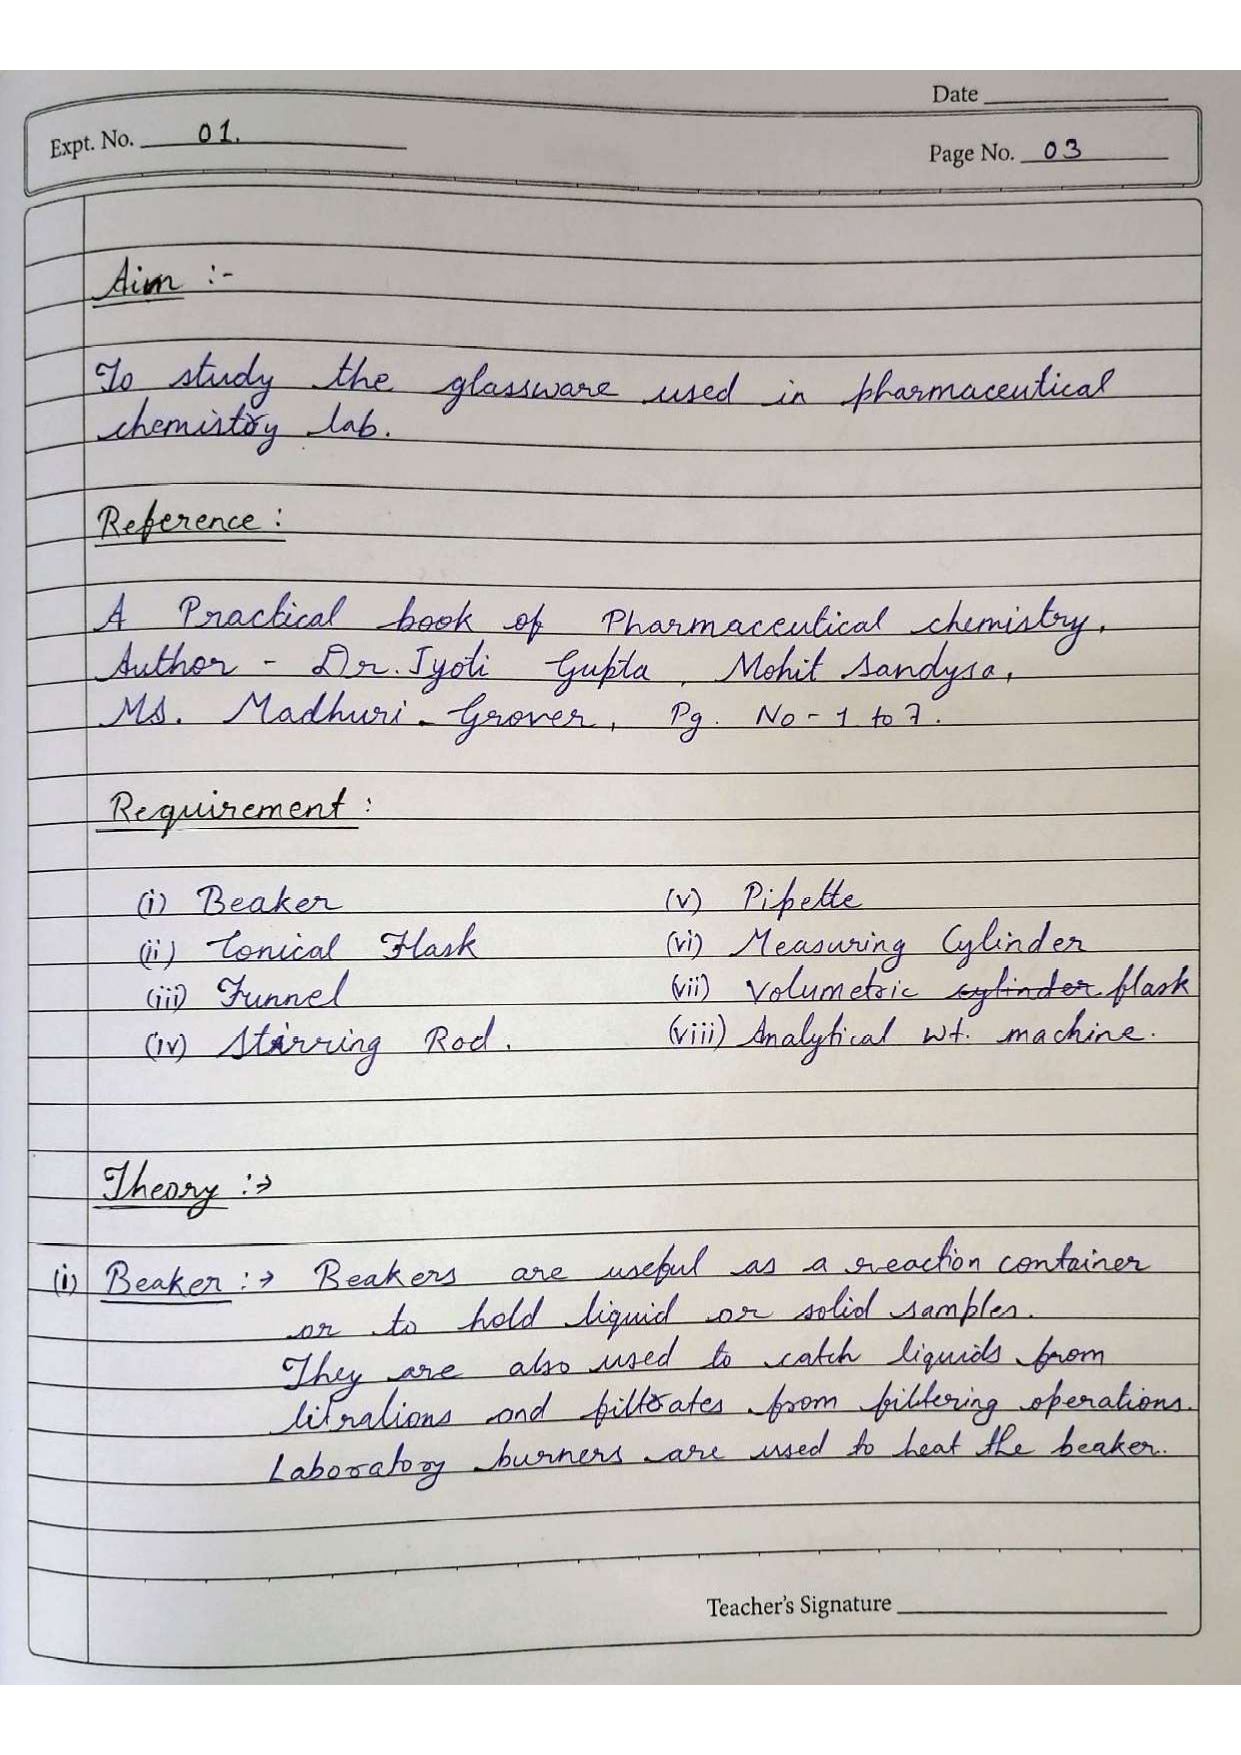 Date
Expt. No. 01.
Page No. 03
Aim :-
To study the glassware used in pharmaceutical
chemistry lab.
Reference :
A Practical book of Pharmaceutical chemistry,
Author - Dr. Jyoti Gupta, Mohit Sandysa,
MS. Madhuri Grover, Pg. No - 1 to 7.
Requirement :
(i) Beaker (v) Pipette
(ii) Conical Flask (vi) Measuring Cylinder
(iii) Funnel (vii) Volumetric cylinder flask
(iv) Stirring Rod. (viii) Analytical wt. machine.
Theory :→
(i) Beaker :→ Beakers are useful as a reaction container
or to hold liquid or solid samples.
They are also used to catch liquids from
litrations and filtrates from filtering operations.
Laboratory burners are used to heat the beaker.
Teacher's Signature